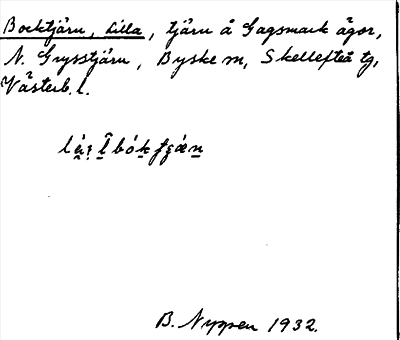 Bocktjärn, Lilla, tjärn å Gagsmark ägor,
N. Grysstjärn, Byske sn, Skellefteå tg,
Västerb. l.
B. Nyman 1932.